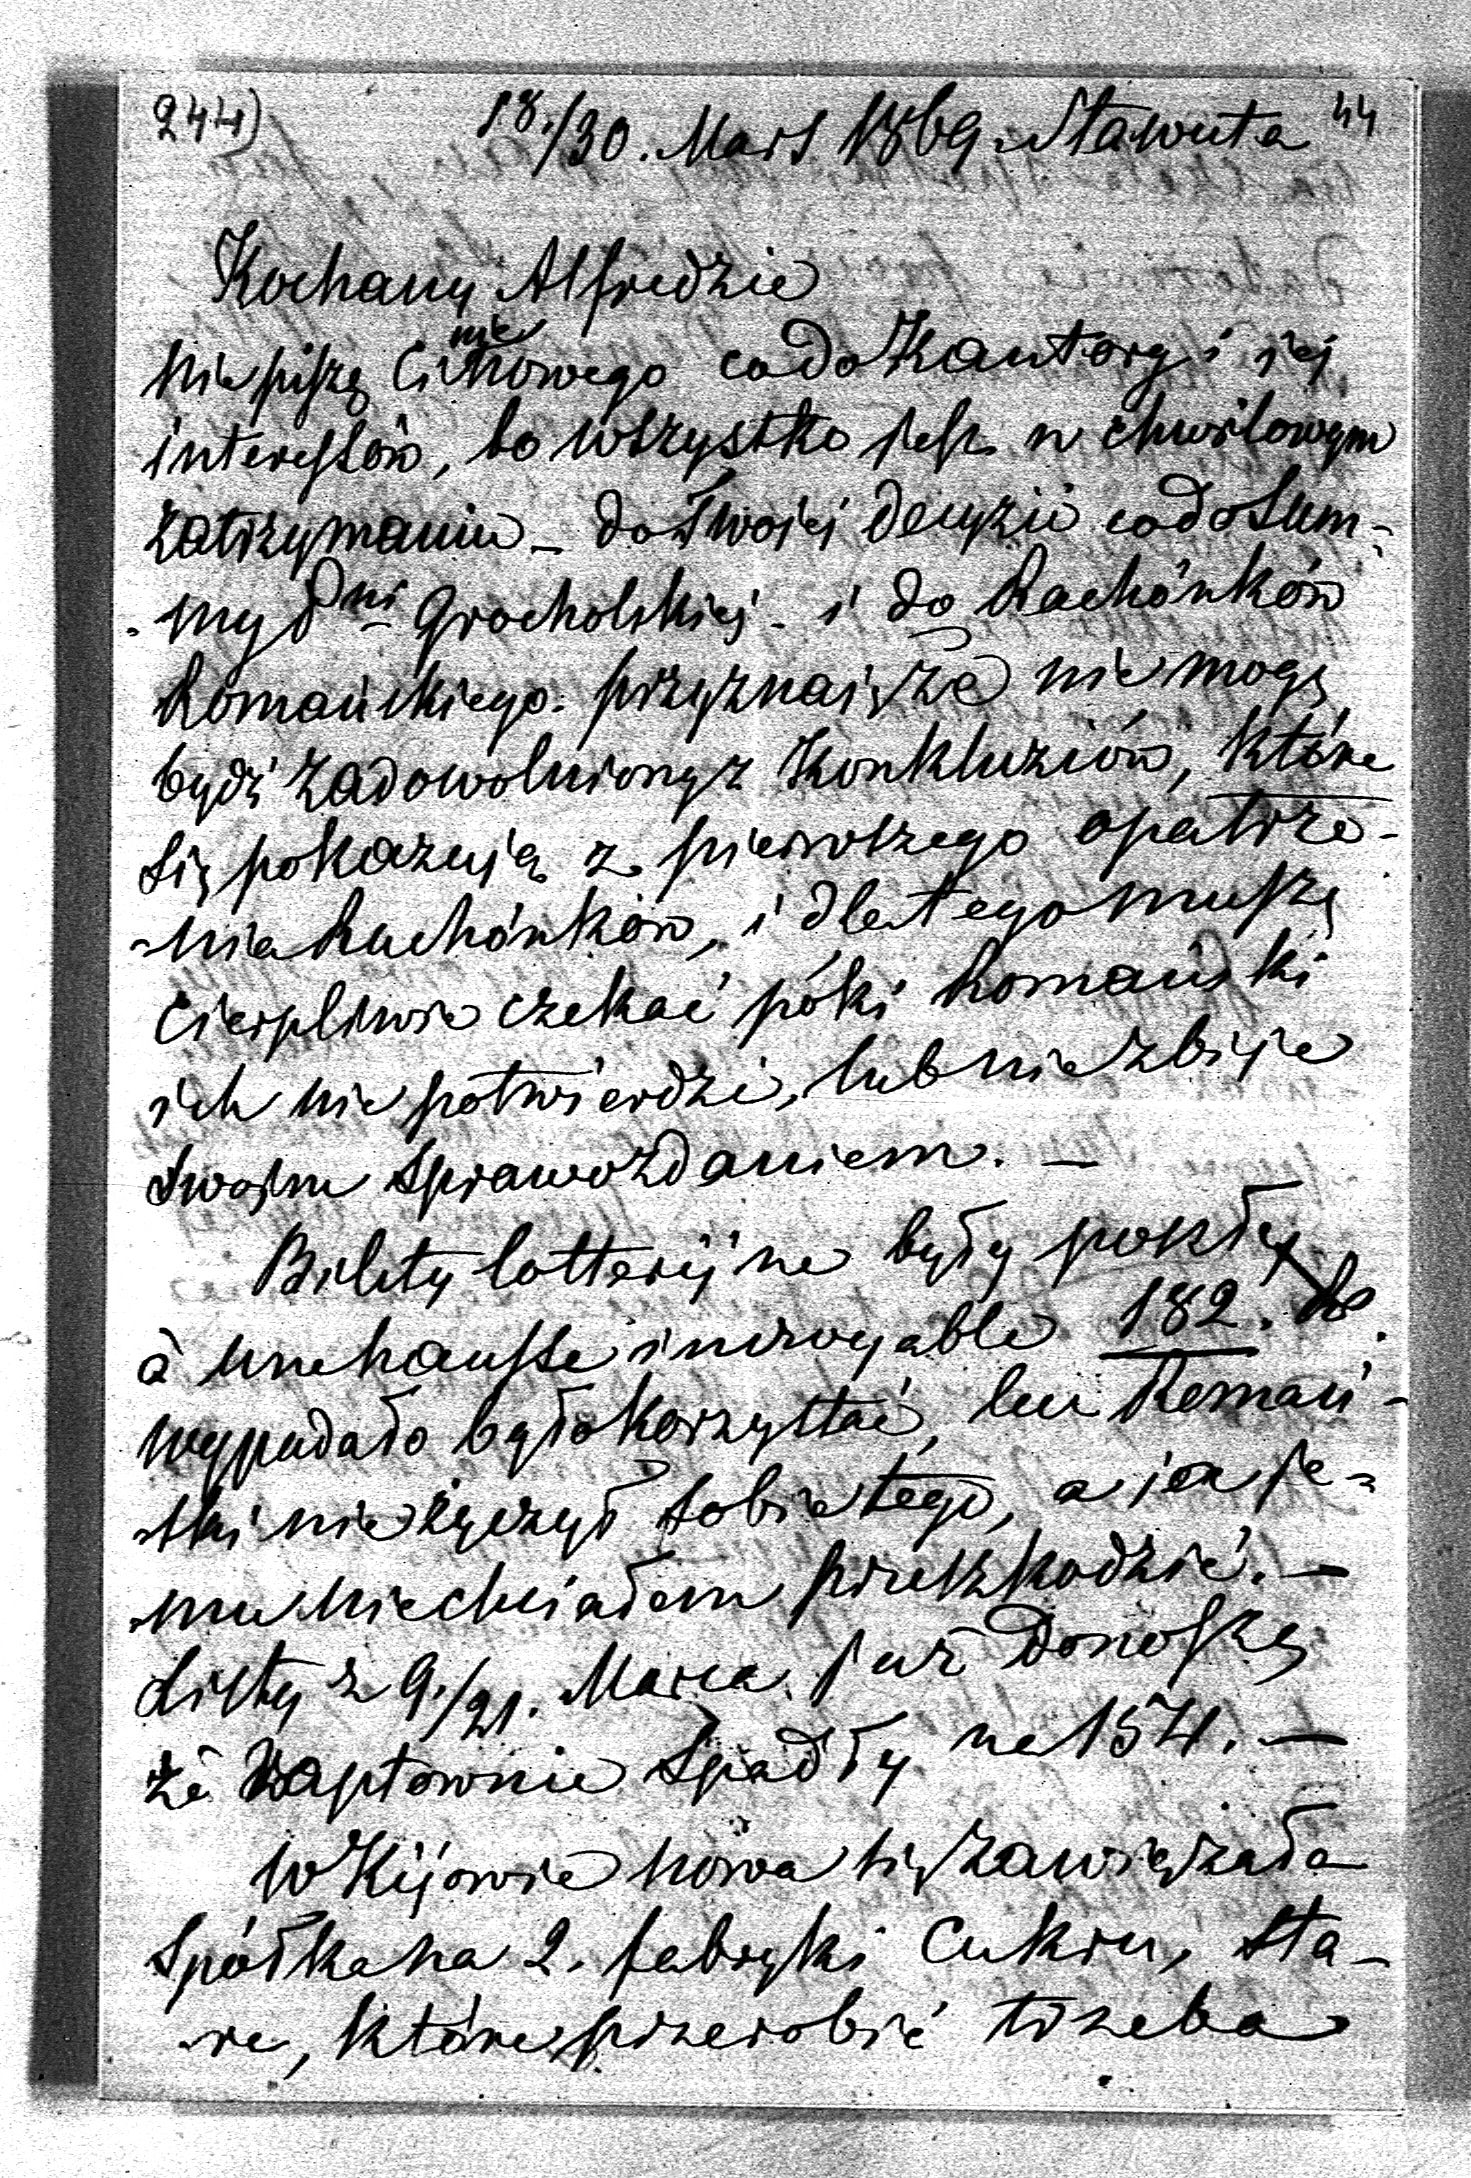 244) 18./30. Mars 1869. Sławuta 44
Kochany Alfredzie
nie piszę Ci nic nowego co do Kantory i jej
interessów, bo wszystko jest w chwilowym
zatrzymaniu – do Twojej decyzii co do Sum-
my Pni Grocholskiej – i do Rachónków
Romańskiego. przyznaię że nie mogę
bydź zadowolniony z Konkluziów, które
się pokazują z pierwszego opatrze-
nia Rachónków, i dla tego muszę
cierpliwie czekać póki Romański
ich nie potwierdzi, lub nie zbije
swojem Sprawozdaniem. –
Bilety lotteryjne były poszły
à une hausse incroyable 182. Rs.
wypadało było korzystać, lecz Romań-
ski nie życzył sobie tego, a ja je-
mu nie chciałem przeszkodzić. –
Listy z 9./21. Marca już donoszą
że raptownie Spadły na 154. –
w Kijowie nowa się zawiązała
Spółka na 2. fabryki Cukru, sta-
re, które przerobić trzeba